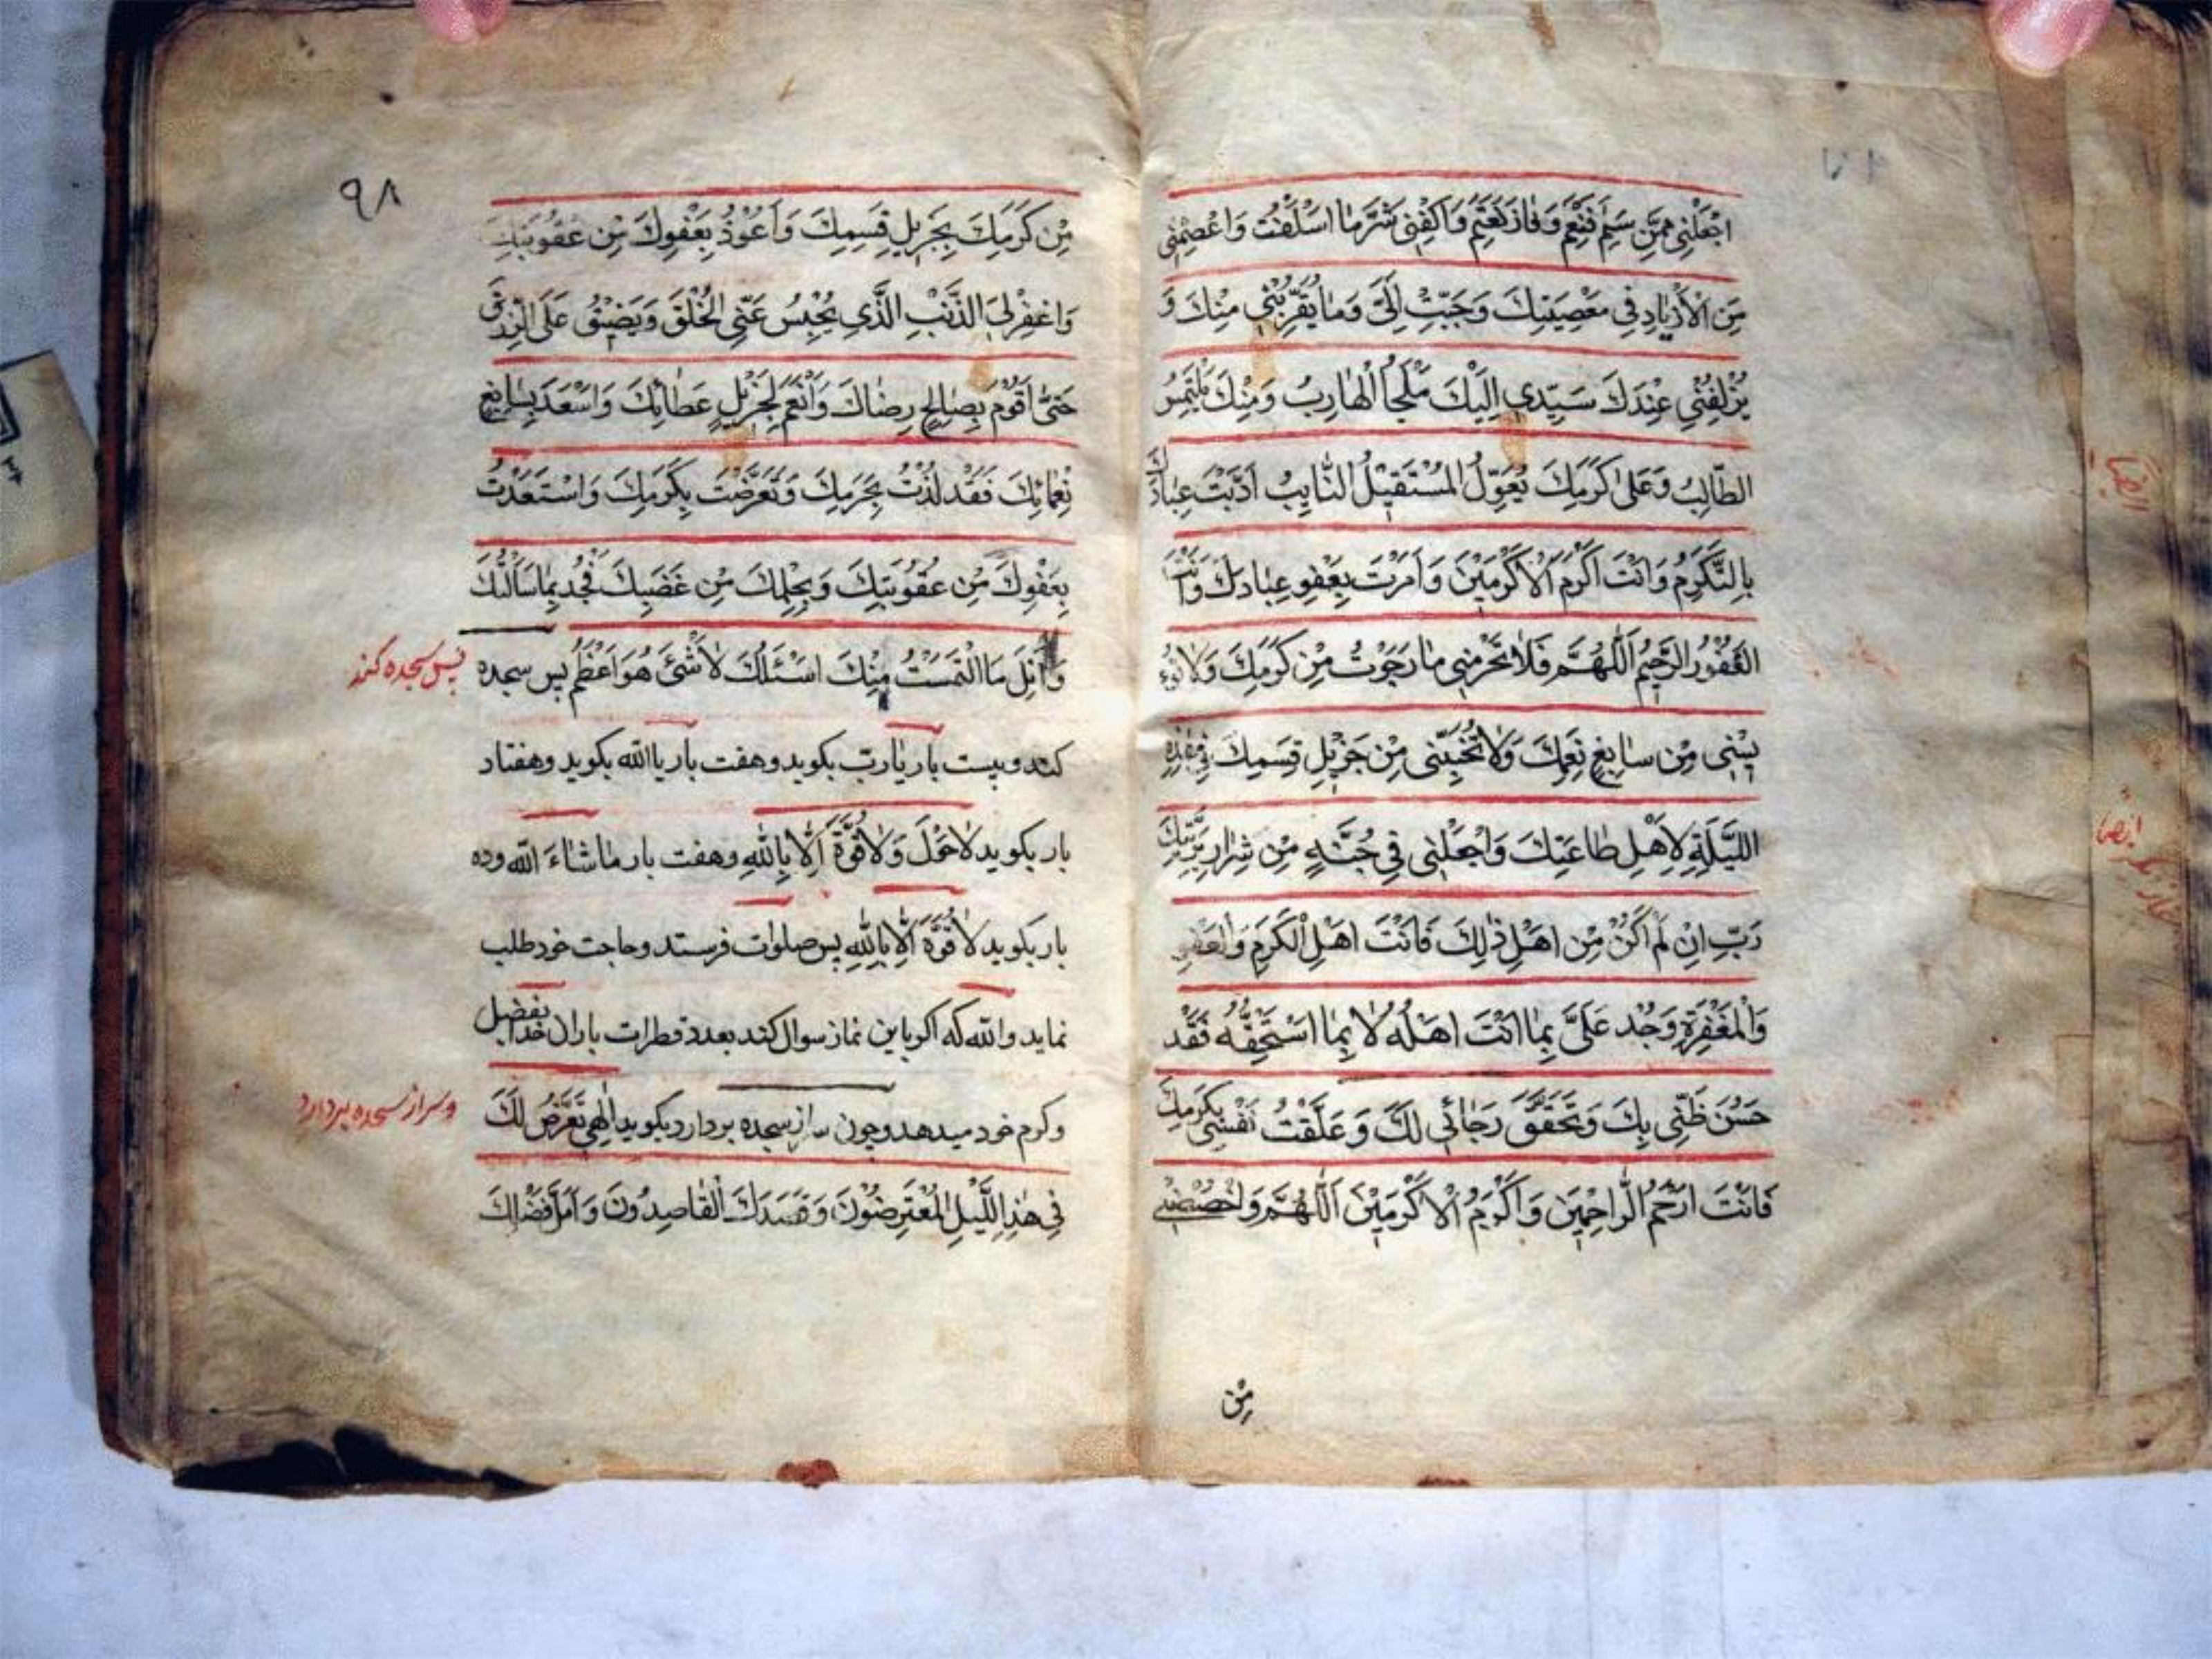 اجْعَلْنِي مِمَّنْ سَلِمَ فَنَعِمَ وَفازَ فَغَنِمَ وَاكْفِنِي شَرَّ مٰا اسْلَفْتُ وَاعْصِمْنِي
مِنَ الْاَزْدِيٰادِ فِي مَعْصِيَتِكَ وَحَبِّبْ اِلَيَّ وَمٰا يُقَرِّبُنِي مِنْكَ وَ
يُزْلِفُنِي عِنْدَكَ سَيِّدِي اِلَيْكَ مَلْجَأُ الْهٰارِبُ وَمِنْكَ يَلْتَمِسُ
الطّٰالِبُ وَعَلىٰ كَرَمِكَ يُعَوِّلُ الْمُسْتَقِيْلُ التّٰايِبُ اَدَّبْتَ عِبٰادَكَ
بِالتَّكَرُّمِ وَاَنْتَ اَكْرَمُ الْاَكْرَمِيْنَ وَاَمَرْتَ بِعَفْوِ عِبٰادِكَ وَاَنْتَ
الْغَفُوْرُ الرَّحِيْمُ اَللّٰهُمَّ فَلٰا تَحْرِمْنِي مٰا رَجَوْتُ مِنْ كَرَمِكَ وَلٰا تُؤْ
يِسْنِي مِنْ سٰابِغِ نِعَمِكَ وَلٰا تُخَيِّبْنِي مِنْ جَزِيْلِ قِسَمِكَ فِي هٰذِهِ
اللَّيْلَةِ لِاَهْلِ طٰاعَتِكَ وَاجْعَلْنِي فِي جُنَّةٍ مِنْ شِرٰارِ بَرِيَّتِكَ
رَبِّ اِنْ لَمْ اَكُنْ مِنْ اَهْلِ ذٰلِكَ فَاَنْتَ اَهْلُ الْكَرَمِ وَالْعَفْوِ
وَالْمَغْفِرَةِ وَجُدْ عَلَيَّ بِمٰا اَنْتَ اَهْلُهُ لٰا بِمٰا اَسْتَحِقُّهُ فَقَدْ
حَسُنَ ظَنِّي بِكَ وَتَحَقَّقَ رَجٰائِي لَكَ وَعَلَّقْتُ نَفْسِي بِكَرَمِكَ
فَاَنْتَ اَرْحَمُ الرّٰاحِمِيْنَ وَاَكْرَمُ الْاَكْرَمِيْنَ اَللّٰهُمَّ وَاخْصُصْنِي
مِنْ
٩٨
مِنْ كَرَمِكَ بِجَزِيلِ قِسَمِكَ وَاَعُوْذُ بِعَفْوِكَ مِنْ عُقُوبَتِكَ
وَاغْفِرْ لِيَ الذَّنْبَ الَّذِي يُحْبِسُ عَنِّي الْخُلْقَ وَيَضِيْقُ عَلَيَّ الرِّزْقَ
حَتّىٰ اَقُوْمَ بِصٰالِحِ رِضٰاكَ وَاَنْعَمَ لِجَزِيْلِ عَطٰائِكَ وَاَسْعَدَ بِسٰابِغِ
نِعْمٰائِكَ فَقَدْ لُذْتُ بِحَرَمِكَ وَتَعَرَّضْتُ بِكَرَمِكَ وَاسْتَعَذْتُ
بِعَفْوِكَ مِنْ عُقُوْبَتِكَ وَبِحِلْمِكَ مِنْ غَضَبِكَ فَجُدْ بِمٰا سَاَلْتُكَ
وَاَنِلْ مَا الْتَمَسْتُ مِنْكَ اَسْئَلُكَ لٰا شَئَ هُوَ اَعْظَمُ پس سجده
پس سجده کند
کند و بیست بار یٰا ربّ بکوید و هفت بار یا الله بکوید و هفتاد
بار بکوید لٰا حَوْلَ وَلٰا قُوَّةَ اِلّٰا بِاللّٰهِ و هفت بار مٰا شٰاءَ الله وده
بار بکوید لٰا قُوَّةَ اِلّٰا بِاللّٰهِ پس صلوات فرستد و حاجت خود طلب
نماید و الله که اکر باین نماز سوال کند بعدد قطرات باران خدا بفضل
وکرم خود میدهد و چون سر از سجده بردارد بکوید اِلٰهِي تَعَرَّضَ لَكَ
و سر از سجده بردارد
فِي هٰذِا اللَّيْلِ الْمُعْتَرِضُوْنَ وَقَصَدَكَ الْقٰاصِدُونَ وَاَمَّلَ فَضْلَكَ